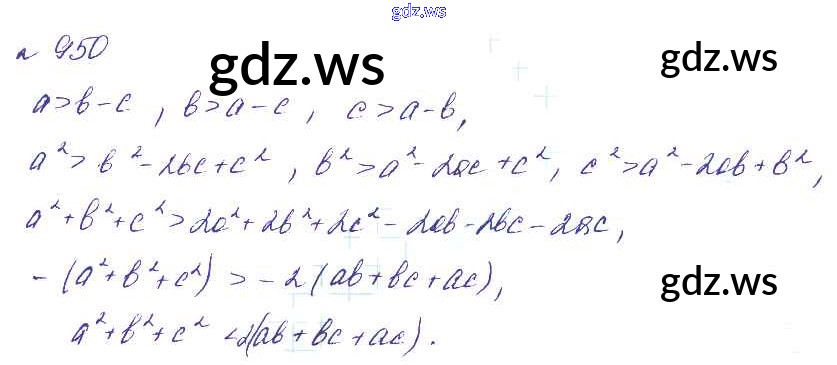 gdz.ws
№ 950
gdz.ws gdz.ws
a > b - c, b > a - c, c > a - b,
a² > b² - 2bc + c², b² > a² - 2ac + c², c² > a² - 2ab + b²,
a² + b² + c² > 2a² + 2b² + 2c² - 2ab - 2bc - 2ac,
- (a² + b² + c²) > - 2 (ab + bc + ac),
gdz.ws gdz.ws
a² + b² + c² < 2(ab + bc + ac).